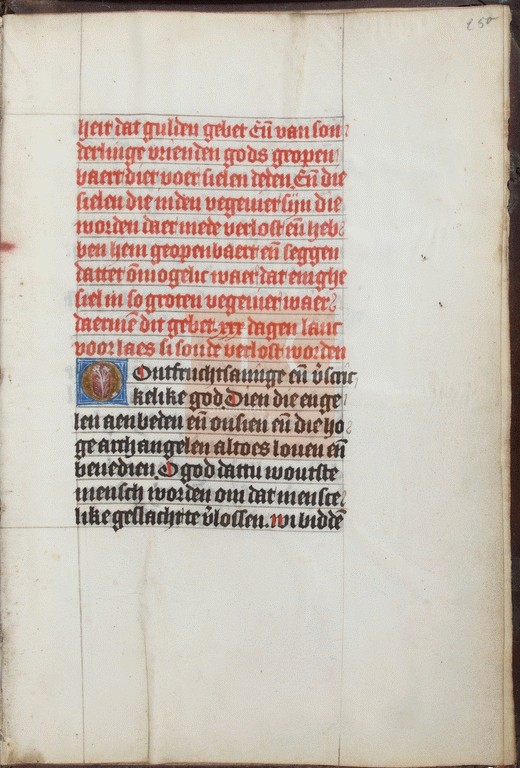 250
heit dat gulden gebet Eñ van son
derlinge vrienden gods geopen
baert die't voer sielen deden. Eñ die
sielen die inden vegevier sijn die
worden daer mede verlost eñ heb
ben hem geopenbaert eñ seggen
dattet õmogelic waer dat enighe
siel in so groten vegevier waer
daermẽ dit gebet .xxx. dagen lanc
voor laes si soude verlost worden
Ontfruchtsamige eñ v̄scric
kelike god Dien die enge
len aenbeden eñ onsien eñ die ho
ge archangelen altoes loven eñ
benedien. O god dattu woutste
mensch worden om dat mensce
like geslachtte v̄lossen. wi biddẽ